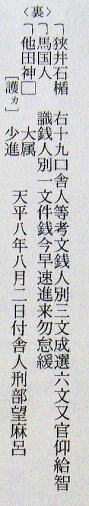 〈裏〉
「狭井石楯　右十九口舎人等考文銭人別三文成選六文又官仰給智
「馬国人　識銭人別一文件銭今早速進来勿怠緩
「他田神□　大属
〔護ヵ〕　少進　天平八年八月二日付舎人刑部望麻呂